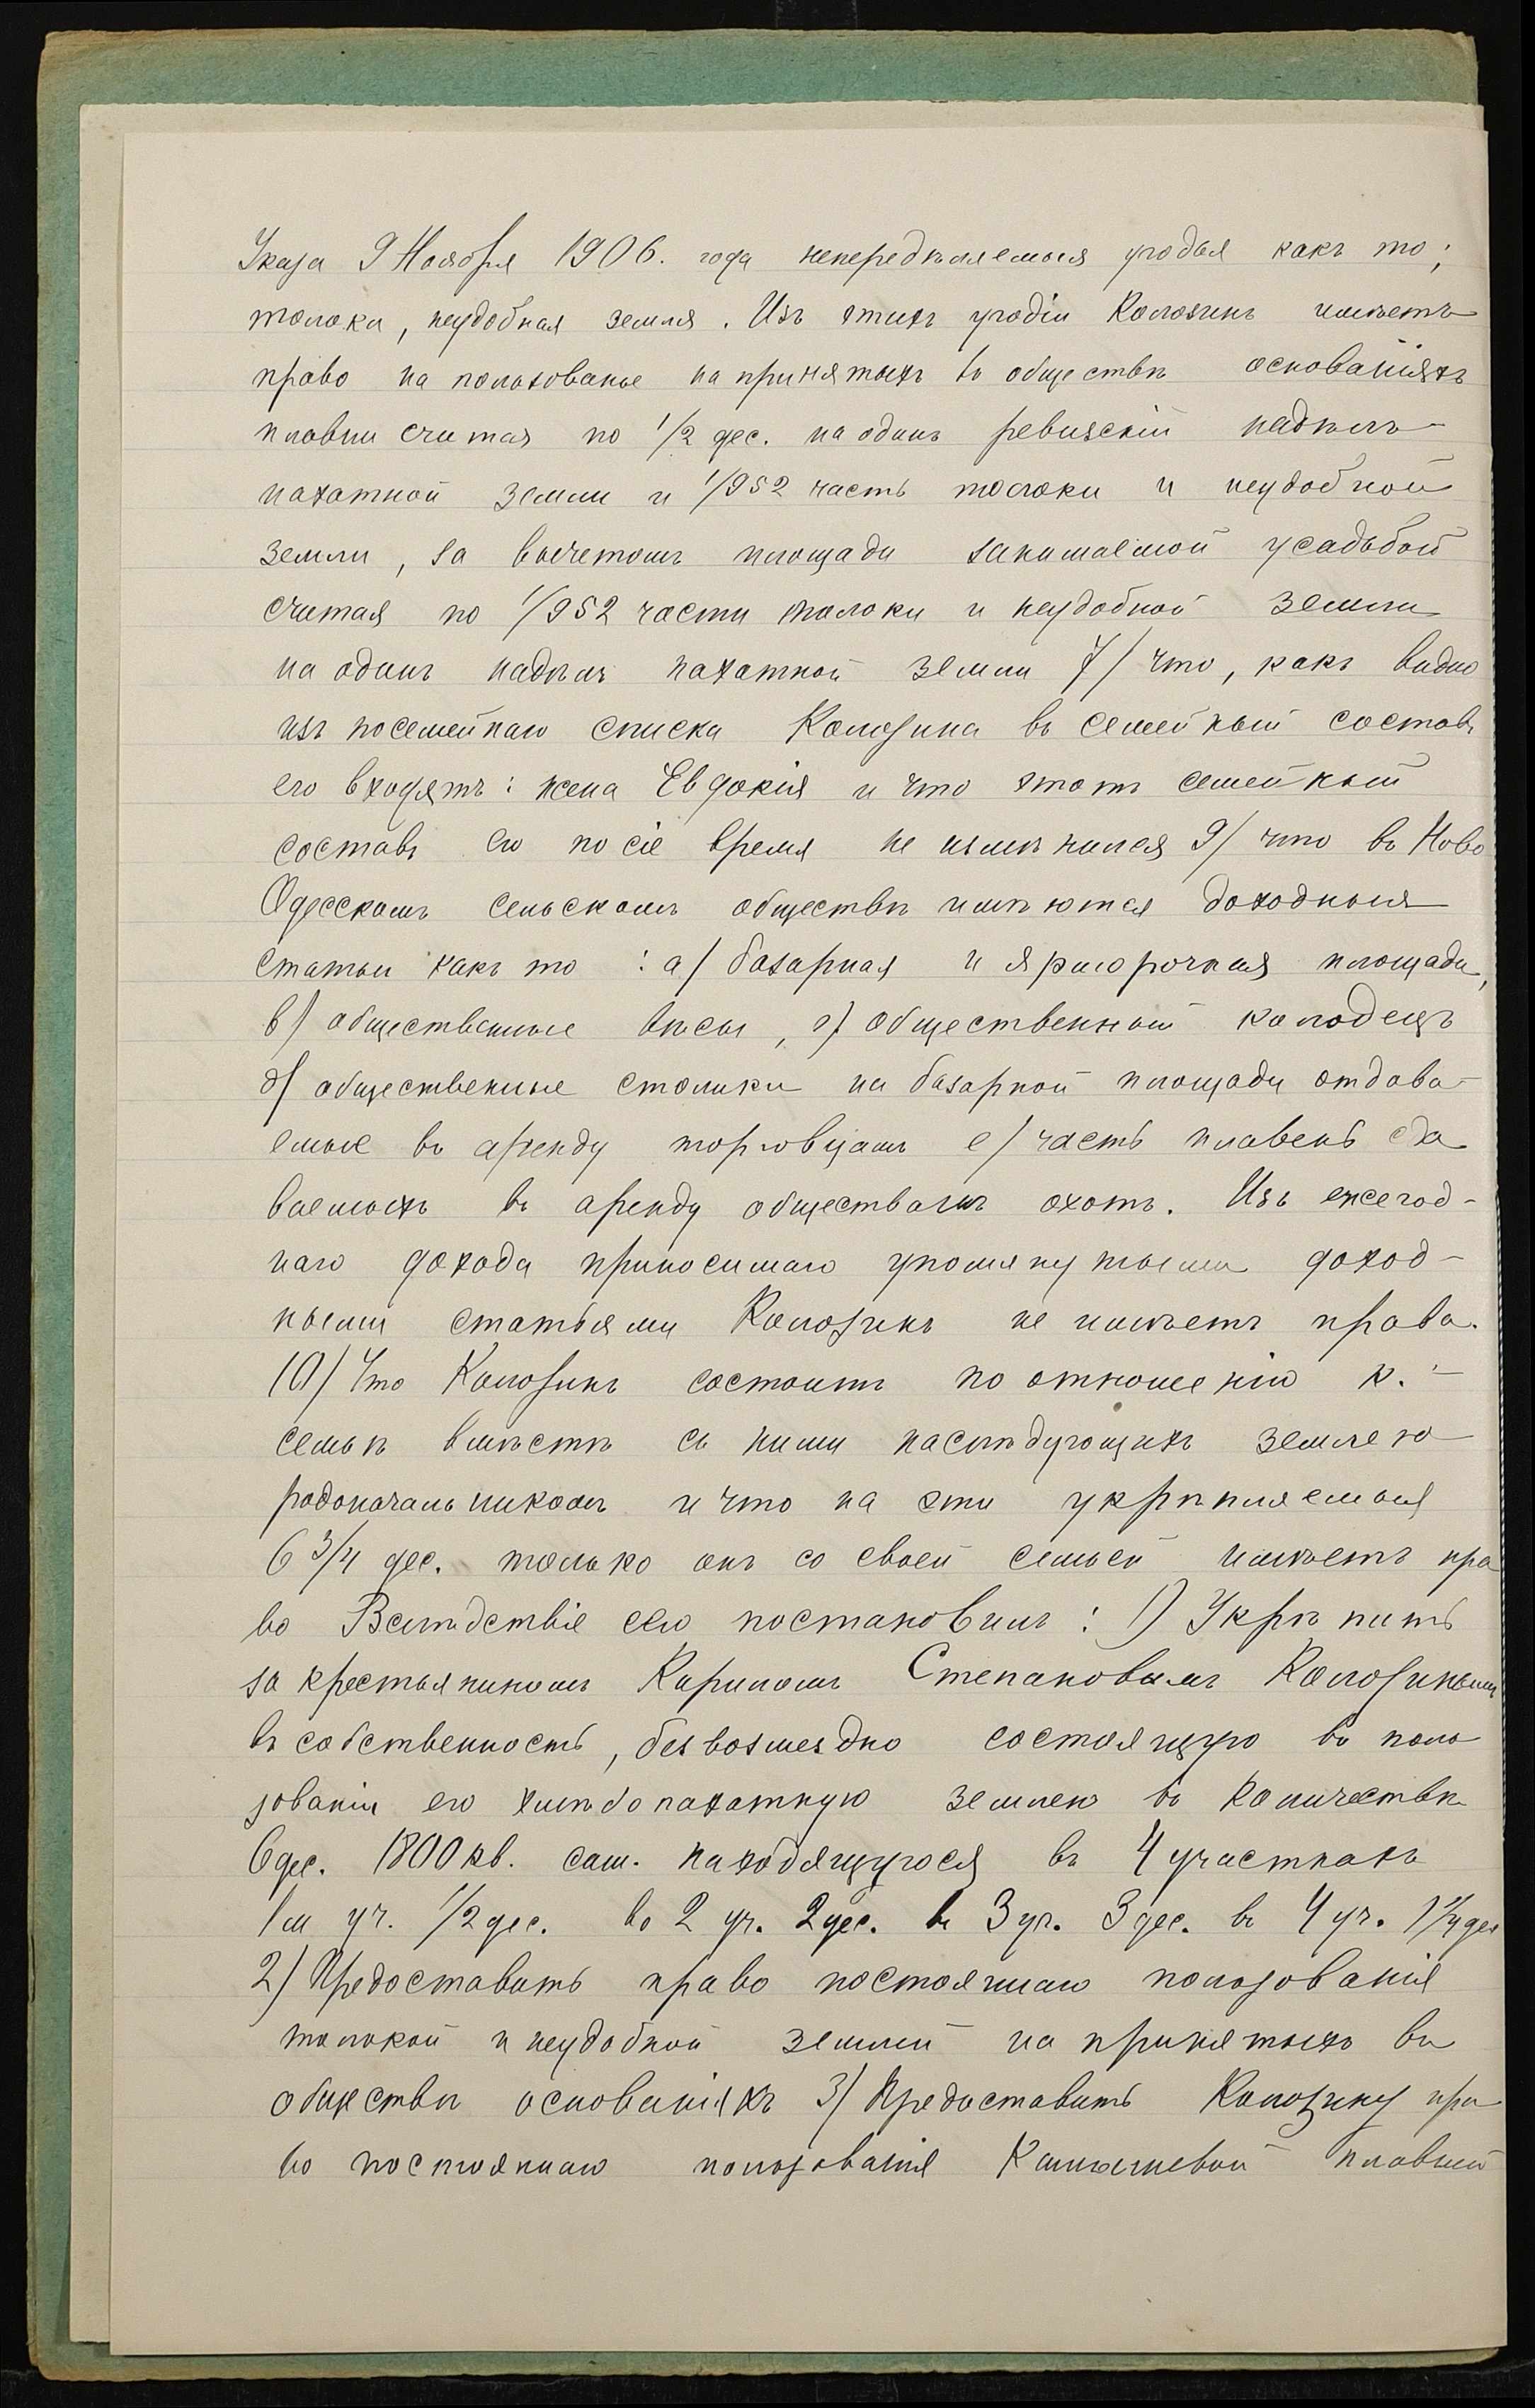 Указа 9 Ноября 1906. года непередѣляемыя угодья какъ то;
толока, неудобная земля. Изъ этихъ угодіи Колозинъ имѣетъ
право на пользованье на принятыхъ въ обществѣ основаніяхъ
плавни считая по 1/2 дес. на одинъ ревизскій надѣлъ
пахатной земли и 1/952 часть толоки и неудобной
земли, за вычетомъ площади занимаемой усадьбой
считая по 1/952 части толоки и неудобной земли
на одинъ надѣлъ пахатной земли 7/ что, какъ видно
изъ посемейнаго списка Колозина въ семейный составъ
его входятъ: жена Евдокія и что этотъ семейный
составъ его по сіе время не измѣнился 9/ что въ Ново
Одесскомъ сельскомъ обществѣ имѣются доходныя
статьи какъ то : а/ базарная и ярморочная площади,
в/ общественные вѣсы, г/ общественный колодецъ
д/ общественные столики на базарной площади отдава-
емые въ аренду торговцамъ е/ часть плавень сда
ваемыхъ въ аренду обществамъ охоты. Изъ ежегод-
наго дохода приносимаго упомянутыми доход-
ными статьями Колозинъ не имѣетъ права.
10/ Что Колозинъ состоитъ по отношенію к.
семьѣ вмѣстѣ съ ними наслѣдующихъ землею
родоначальникомъ и что на эти укрѣпляемыя
6 3/4 дес. только онъ со своей семьей имѣетъ пра
во Вслѣдствіе сего постановилъ: 1) Укрѣпить
за крестьяниномъ Карпомъ Степановымъ Колозинымъ
въ собственность, безвозмездно состоящую въ поль
зованіи его хлѣбопахатную землею въ количествѣ
6 дес. 1800 кв. саж. находящуюся въ 4 участкахъ
1м уч. 1/2 дес. во 2 уч. 2 дес. в 3 уч. 3 дес. в 4 уч. 1 1/4 дес
2/ Предоставить право постояннаго пользованія
толокой и неудобной землей на принятыхъ въ
обществѣ основаніяхъ 3/ Предоставить Колозину пра
во постояннаго пользованія Камышевой плавней